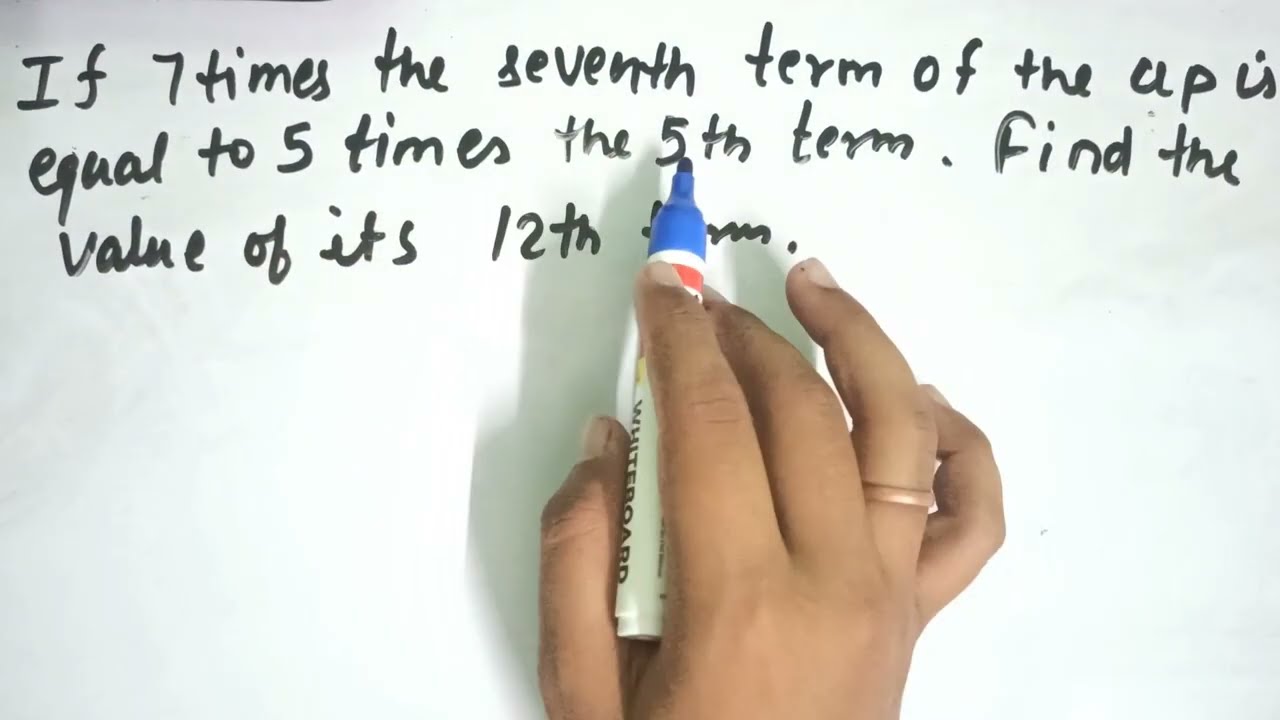 If 7 times the seventh term of the ap is
equal to 5 times the 5th term. Find the
value of its 12th term.
WHITEBOARD